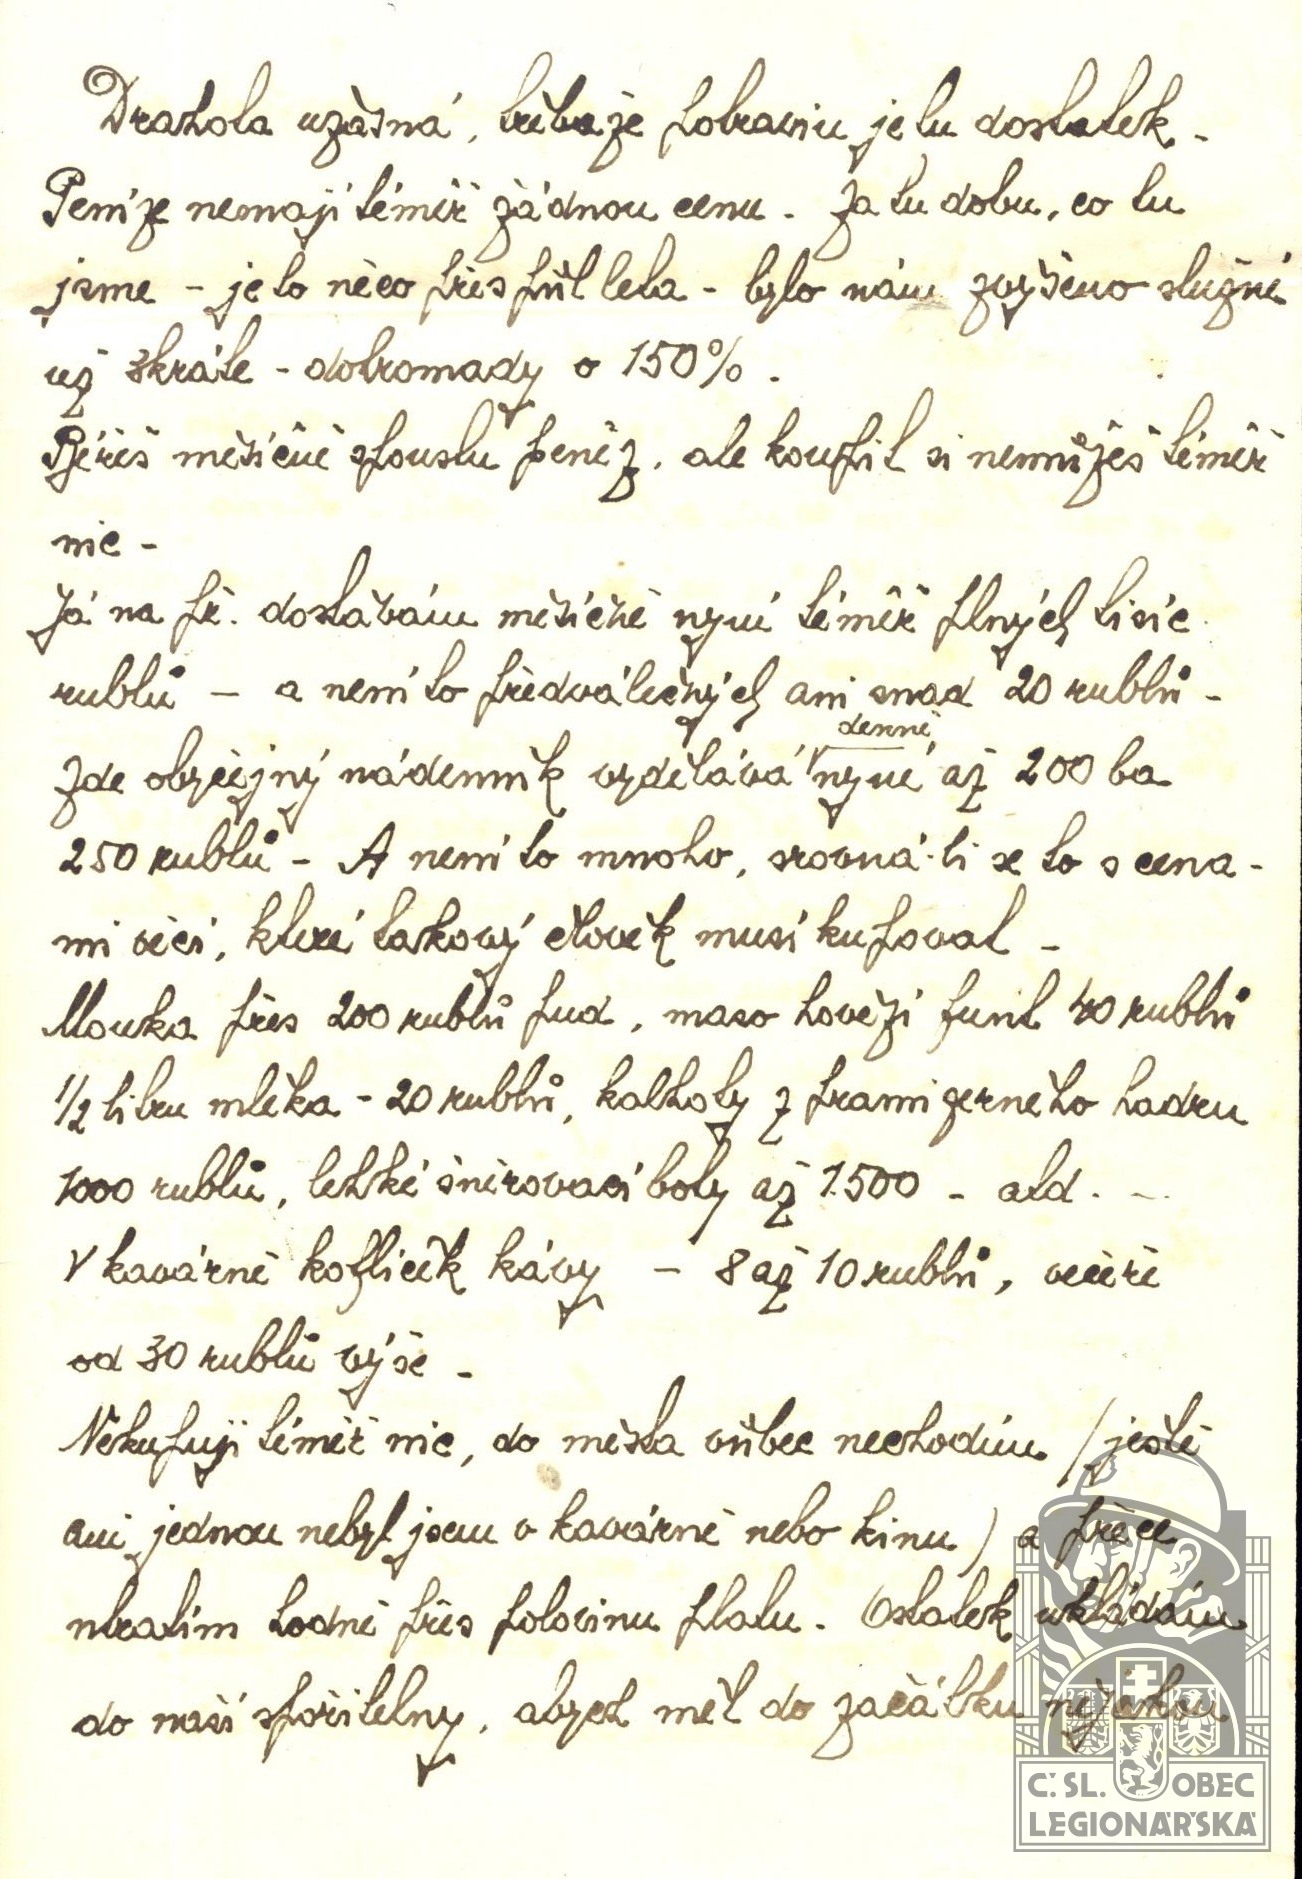 Drahota úžasná, třebaže potravin je tu dostatek -
Peníze nemají téměř žádnou cenu. Za tu dobu, co tu
jsme - je to něco přes půl leta - bylo nám zvýšeno služné
už 3krále - dohromady o 150% .
Béřeš měsíčně spoustu peněz, ale koupit si nemůžeš téměř
nic -
Já na př. dostávám měsíčně nyní téměř plných tisíc
rublů - a není to předválečných ani snad 20 rublů -
denně
Zde obyčejný nádenník vydělává nyní až 200 ba
250 rublů - A není to mnoho, srovná-li se to s cena-
mi věcí, které takový člověk musí kupovat -
Mouka přes 200 rublů pud, maso hovězí funt 40 rublů
1/2 litru mléka - 20 rublů, kalhoty z pramizerného hadru
1000 rublů, lehké šněrovací boty až 1500 - atd. -
V kavárně koflíček kávy - 8 až 10 rublů, večeře
od 30 rublů výše -
Nekupuji téměř nic, do města vůbec nechodím / ještě
ani jednou nebyl jsem v kavárně nebo kinu ) a přece
utratím hodně přes polovinu platu. Ostatek ukládám
do naší spořitelny, abych měl do začátku nějakou
Č. SL. OBEC
LEGIONÁŘSKÁ